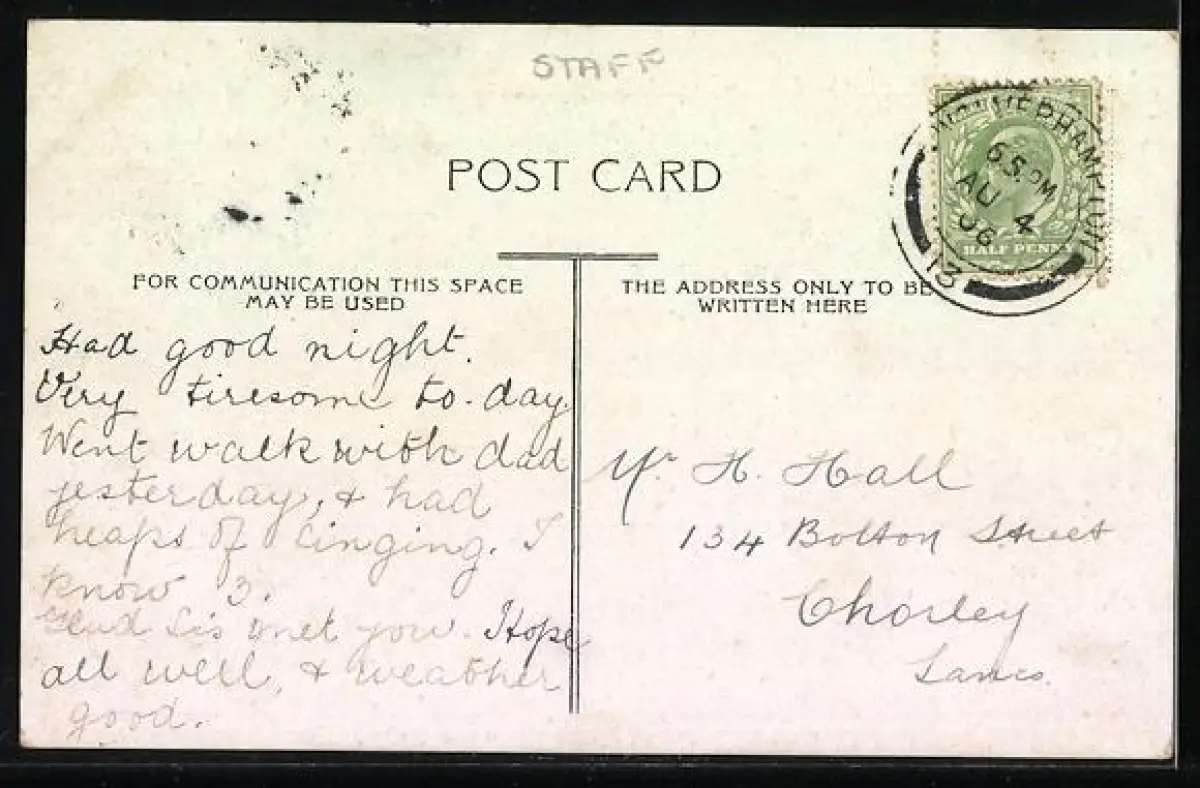 STAFF
POST CARD
WOLVERHAMPTON
6 5. PM
AU 4
06
13
HALF PENNY
FOR COMMUNICATION THIS SPACE
MAY BE USED
Had good night.
Very tiresome to-day
Went walk with dad
yesterday, & had
heaps of singing. I
know 3.
Glad Sis met you. Hope
all well, & weather
good.
THE ADDRESS ONLY TO BE
WRITTEN HERE
Mr H. Hall
134 Bolton Street
Chorley
Lancs.